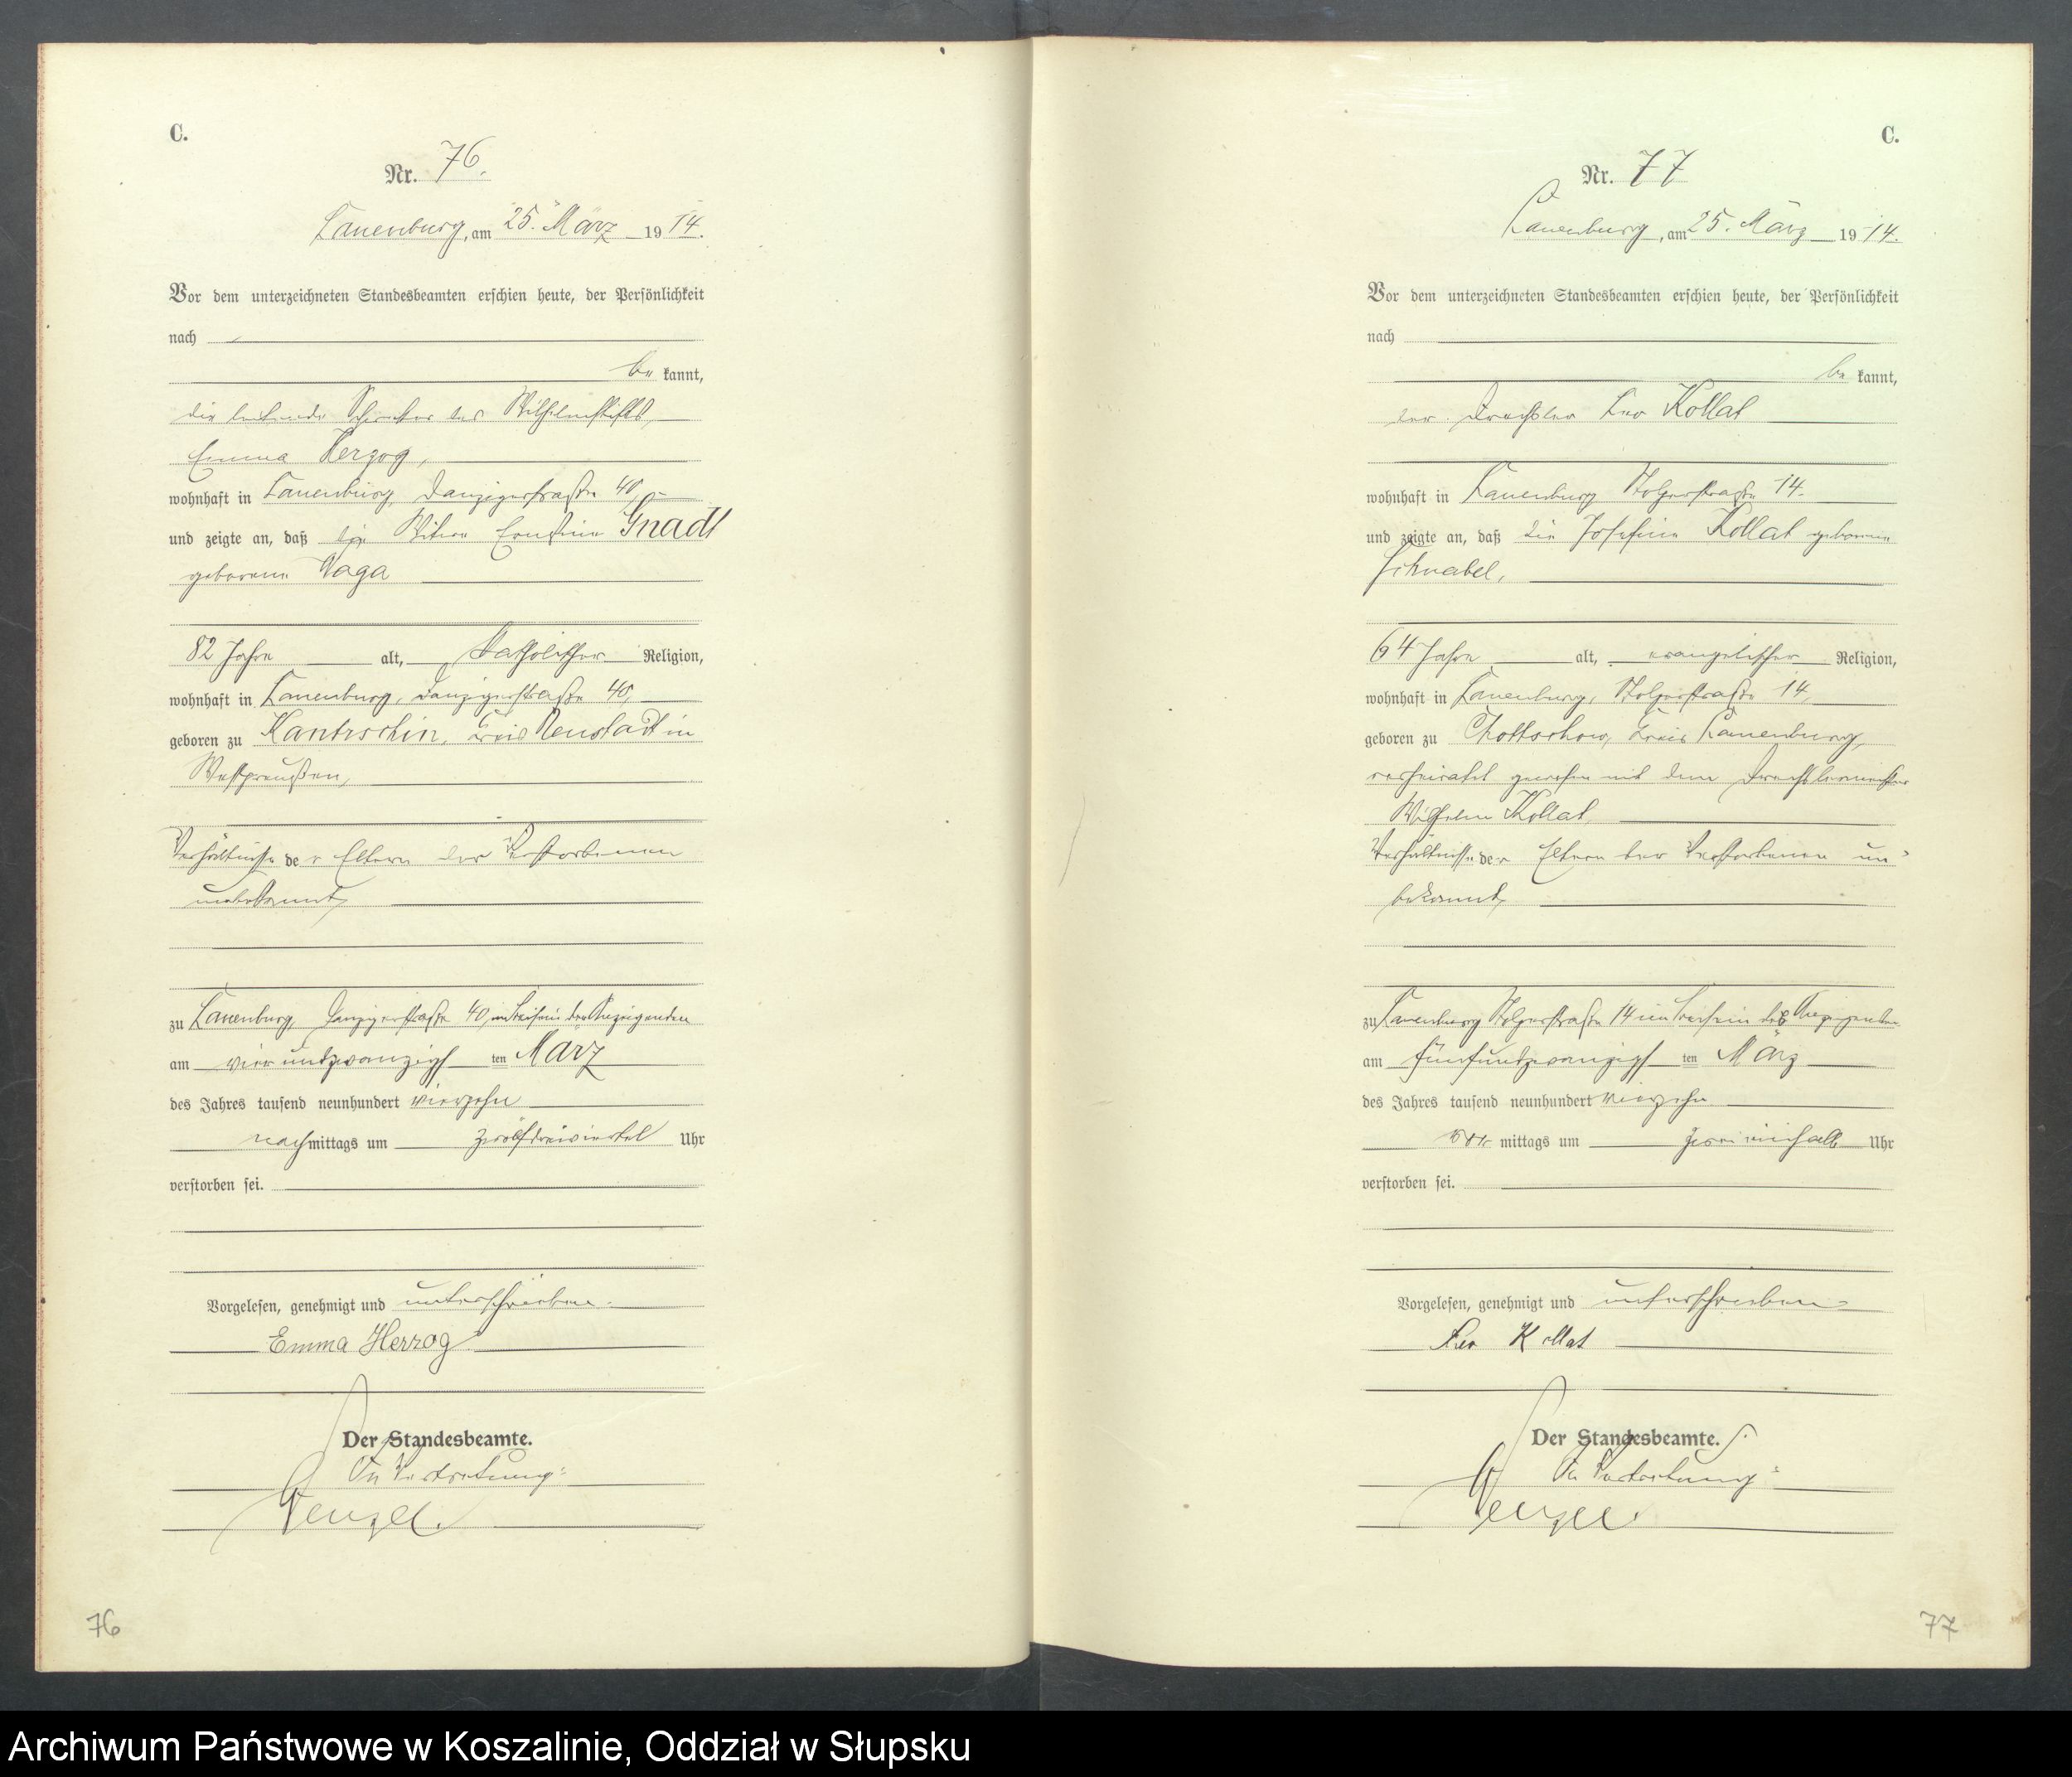 C.
Nr. 76.
Lauenburg, am 25. März 1914.
Vor dem unterzeichneten Standesbeamten erschien heute, der Persönlichkeit
nach
be kannt,
die leitende Schwester des Wilhelmstifts,
Emma Herzog,
wohnhaft in Lauenburg, Danzigerstraße 40,
und zeigte an, daß die Witwe Ernstine Gnadt
geborene Vaga
82 Jahre alt, katholischer Religion,
wohnhaft in Lauenburg, Danzigerstraße 40,
geboren zu Kantrschin, Kreis Neustadt in
Westpreußen,
Verhältnisse der Eltern der Verstorbenen
unbekannt,
zu Lauenburg, Danzigerstraße 40, im Beisein der Anzeigenden
am vierundzwanzigsten März
des Jahres tausend neunhundert vierzehn
nachmittags um zwölfdreiviertel Uhr
verstorben sei.
Vorgelesen, genehmigt und unterschrieben.
Emma Herzog
Der Standesbeamte.
In Vertretung:
76
C.
Nr. 77
Lauenburg, am 25. März 1914.
Vor dem unterzeichneten Standesbeamten erschien heute, der Persönlichkeit
nach
be kannt,
der Drechsler Leo Kollat
wohnhaft in Lauenburg Stolperstraße 14.
und zeigte an, daß die Josefine Kollat geborene
Schnabel,
64 Jahre alt, evangelischer Religion,
wohnhaft in Lauenburg, Stolperstraße 14,
geboren zu Chottschow, Kreis Lauenburg,
verheiratet gewesen mit dem Drechslermeister
Wilhelm Kollat,
Verhältnisse der Eltern der Verstorbenen un-
bekannt,
zu Lauenburg Stolperstraße 14 im Beisein des Anzeigenden
am fünfundzwanzigsten März
des Jahres tausend neunhundert vierzehn
vormittags um zweieinhalb Uhr
verstorben sei.
Vorgelesen, genehmigt und unterschrieben
Leo Kollat
Der Standesbeamte.
In Vertretung:
77
Archiwum Państwowe w Koszalinie, Oddział w Słupsku